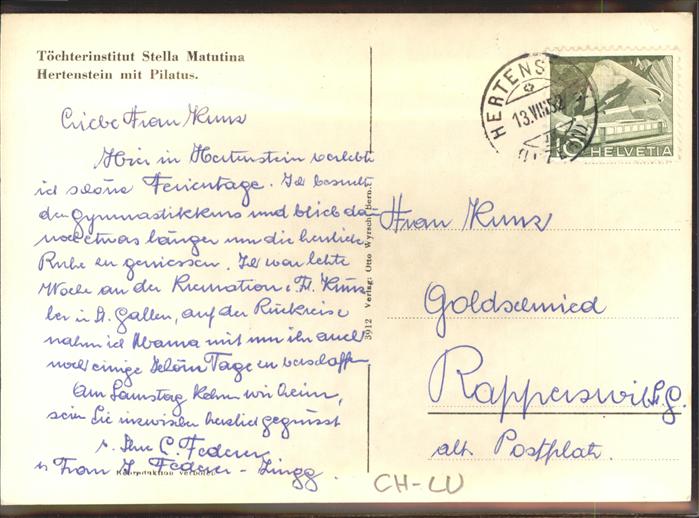 Töchterinstitut Stella Matutina
Hertenstein mit Pilatus.
Liebe Frau Kunz
Hier in Hertenstein verlebte
ich schöne Ferientage. Ich besuchte
den Gymnastikkurs und blieb da
noch etwas länger um die herrliche
Ruhe zu geniessen. Ich war letzte
Woche an der Kremation v. Frl. Künz
ler in St. Gallen, auf der Rückreise
nahm ich Mama mit um ihr auch
noch einige schöne Tage zu verschaffen
Am Samstag kehren wir heim,
seien Sie inzwischen herzlich gegrüsst
v. Ihrer C. Federer
u Frau J. Federer-Zingg.
Reproduktion verboten
3912 Verlag: Otto Wyrsch, Bern.
HERTENSTEIN
13.VIII.52
(LUZERN)
10 HELVETIA
Frau Kunz
Goldschmied
Rapperswil St. G.
alt. Postplatz.
CH-LU